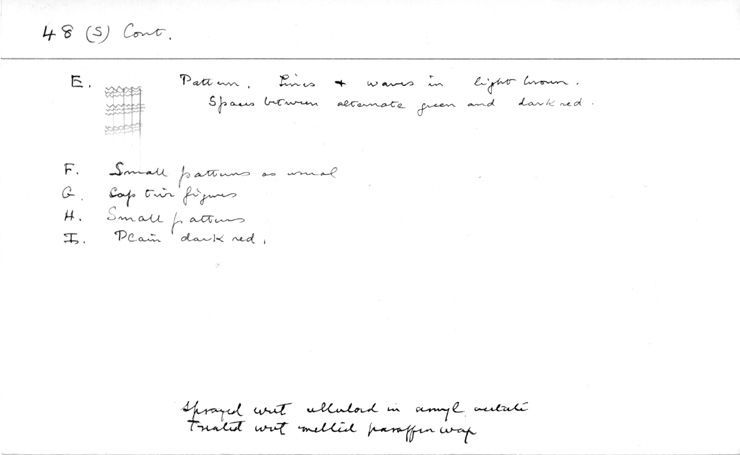 48 (S) Cont.
E. Pattern. Lines + waves in light brown.
Spaces between alternate green and dark red.
F. Small patterns as usual
G. Cap figures
H. Small patterns
I. Plain dark red.
Sprayed wit celluloid in amyl acetate
Treated wit melted paraffin wax